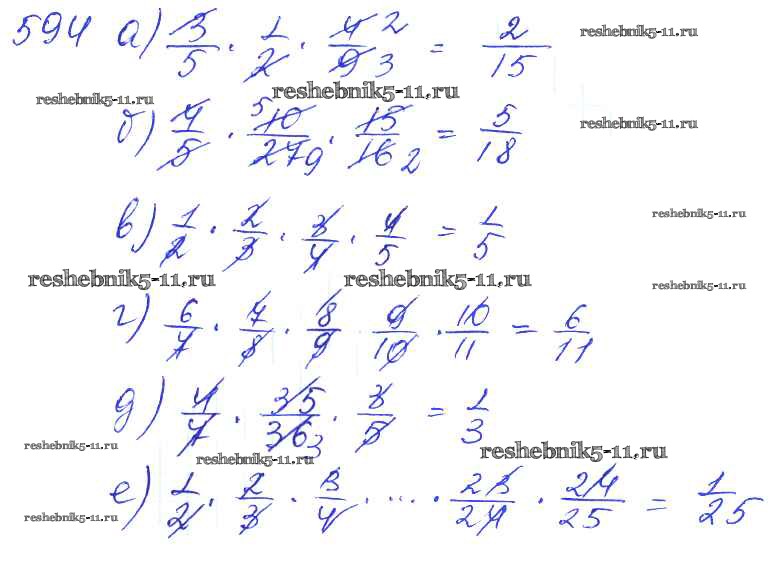 594 а) 3/5 · 1/2 · 4/9 2 3 = 2/15
reshebnik5-11.ru
reshebnik5-11.ru
reshebnik5-11.ru
б) 4/5 · 5 10/27 9 · 15/16 2 = 5/18
reshebnik5-11.ru
в) 1/2 · 2/3 · 3/4 · 4/5 = 1/5
reshebnik5-11.ru
reshebnik5-11.ru
reshebnik5-11.ru
reshebnik5-11.ru
г) 6/7 · 7/8 · 8/9 · 9/10 · 10/11 = 6/11
д) 4/7 · 35/36 3 · 3/5 = 1/3
reshebnik5-11.ru
reshebnik5-11.ru
reshebnik5-11.ru
е) 1/2 · 2/3 · 3/4 · ... · 23/24 · 24/25 = 1/25
reshebnik5-11.ru